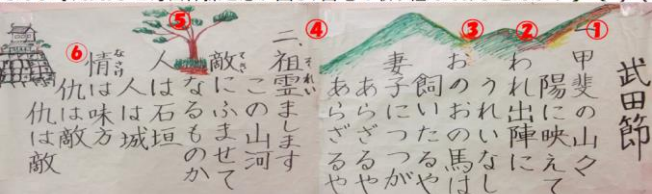 武田節
①
一甲斐の山々
陽に映えて
②
われ出陣に
うれいなし
③
おのおの馬は
飼いたるや
妻子につつが
あらざるや
あらざるや
④
二、祖霊まします
それい
この山河
⑤
敵にふませて
てき
なるものか
人は石垣
人は城
⑥
情は味方
なさけ
仇は敵
仇は敵